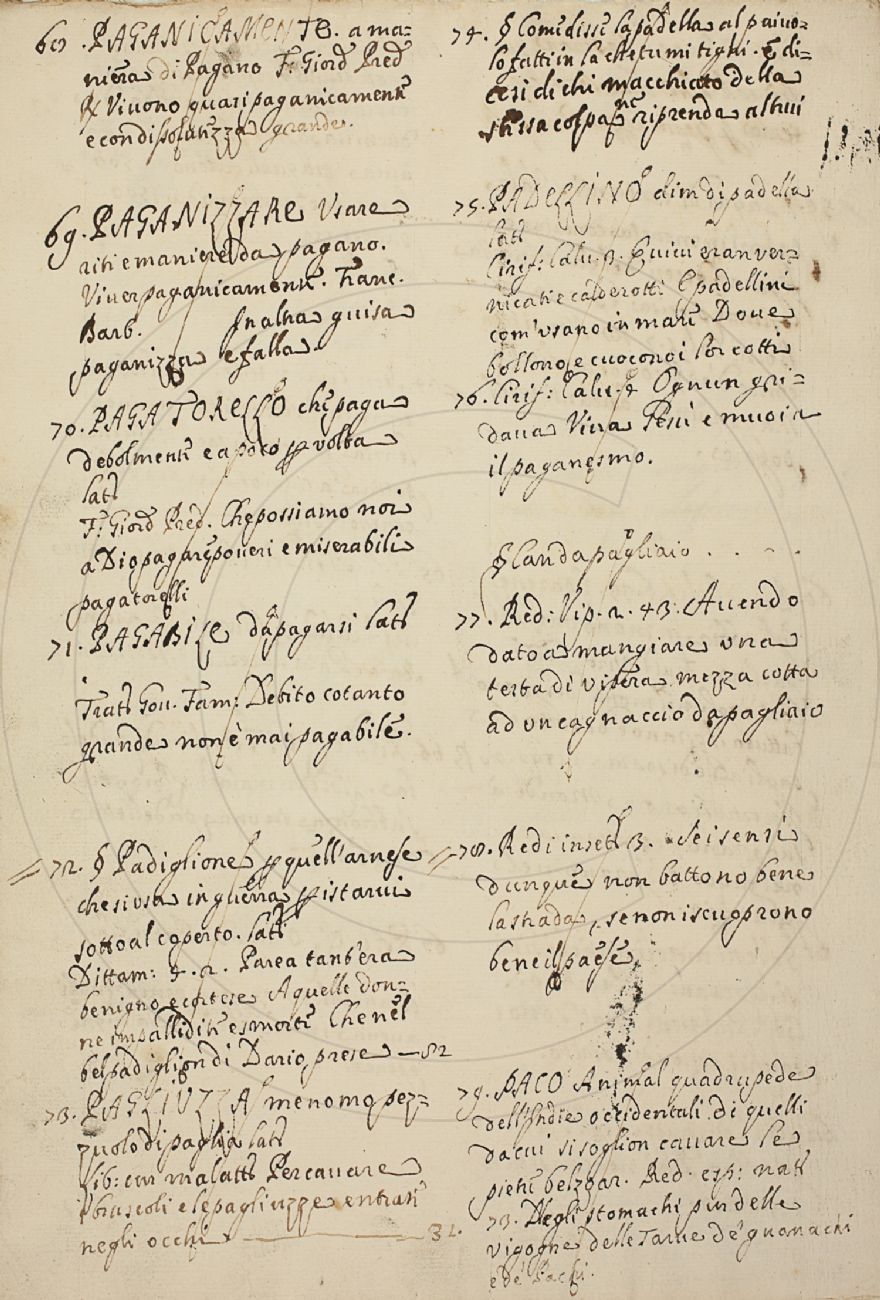 68. PAGANICAMENTE. a ma=
niera di Pagano F. Giord Pred
R Viuono quasi paganicamente
e con dissolutezza grande.
69. PAGANIZZARE Usare
riti e maniere da pagano.
Viuer paganicamente. Franc.
Barb. In altra guisa
paganizza e falla.
70. PAGATORELLO che paga
debolmente e a poco p volta
lat
F. Giord Pred. Che possiamo noi
a Dio pagare poueri e miserabili
pagatorelli
71. PAGABILE da pagarsi lat
Tratt Gou. Fam: Debito cotanto
grande non è mai pagabile.
72. § Padiglione p quell'arnese
che si usa in guerra p istarui
sotto al coperto. lat
Dittam: 4. 2. Parea tant'era
benigno e cortese A quelle don=
ne impallidite e smorte Che nel
bel padiglion di Dario prese — 82
73. PAGLIUZZA menomo pez=
zuolo di paglia lat
lib: cur malatt Per cauare
i bruscoli e le pagliuzze entrate
negli occhi — 31.
74. § Come disse la padella al paiuo=
lo fatti in la che tu mi tigni. E di=
cesi di chi macchiato della
stessa colpa ne riprenda altrui
75. PADELLINO dim di padella
lat
Cirif: Calu. 3. Quiui eran ver=
nicati e calderotti E padellini
com'usano in mare Doue
bollono, e cuocono i lor cotti
76. Cirif: Calu. Ognun gri=
daua Viua Gesù e muoia
il paganesmo.
§ Can da pagliaio . . . .
77. Red: Vip. 2. 43. Auendo
dato a mangiare una
testa di vipera mezza cotta
ad un cagnaccio da pagliaio
78. Redi inset 3. Se i sensi
dunque non battono bene
la strada, se non iscuoprono
bene il paese,
79. PACO Animal quadrupede
dell'Indie occidentali di quelli
da cui si soglion cauare le
pietre belzoar. Red. esp: nat
73. Negli stomachi pur delle
vigogne delle Tarue de' guanachi
e de' Pachi.